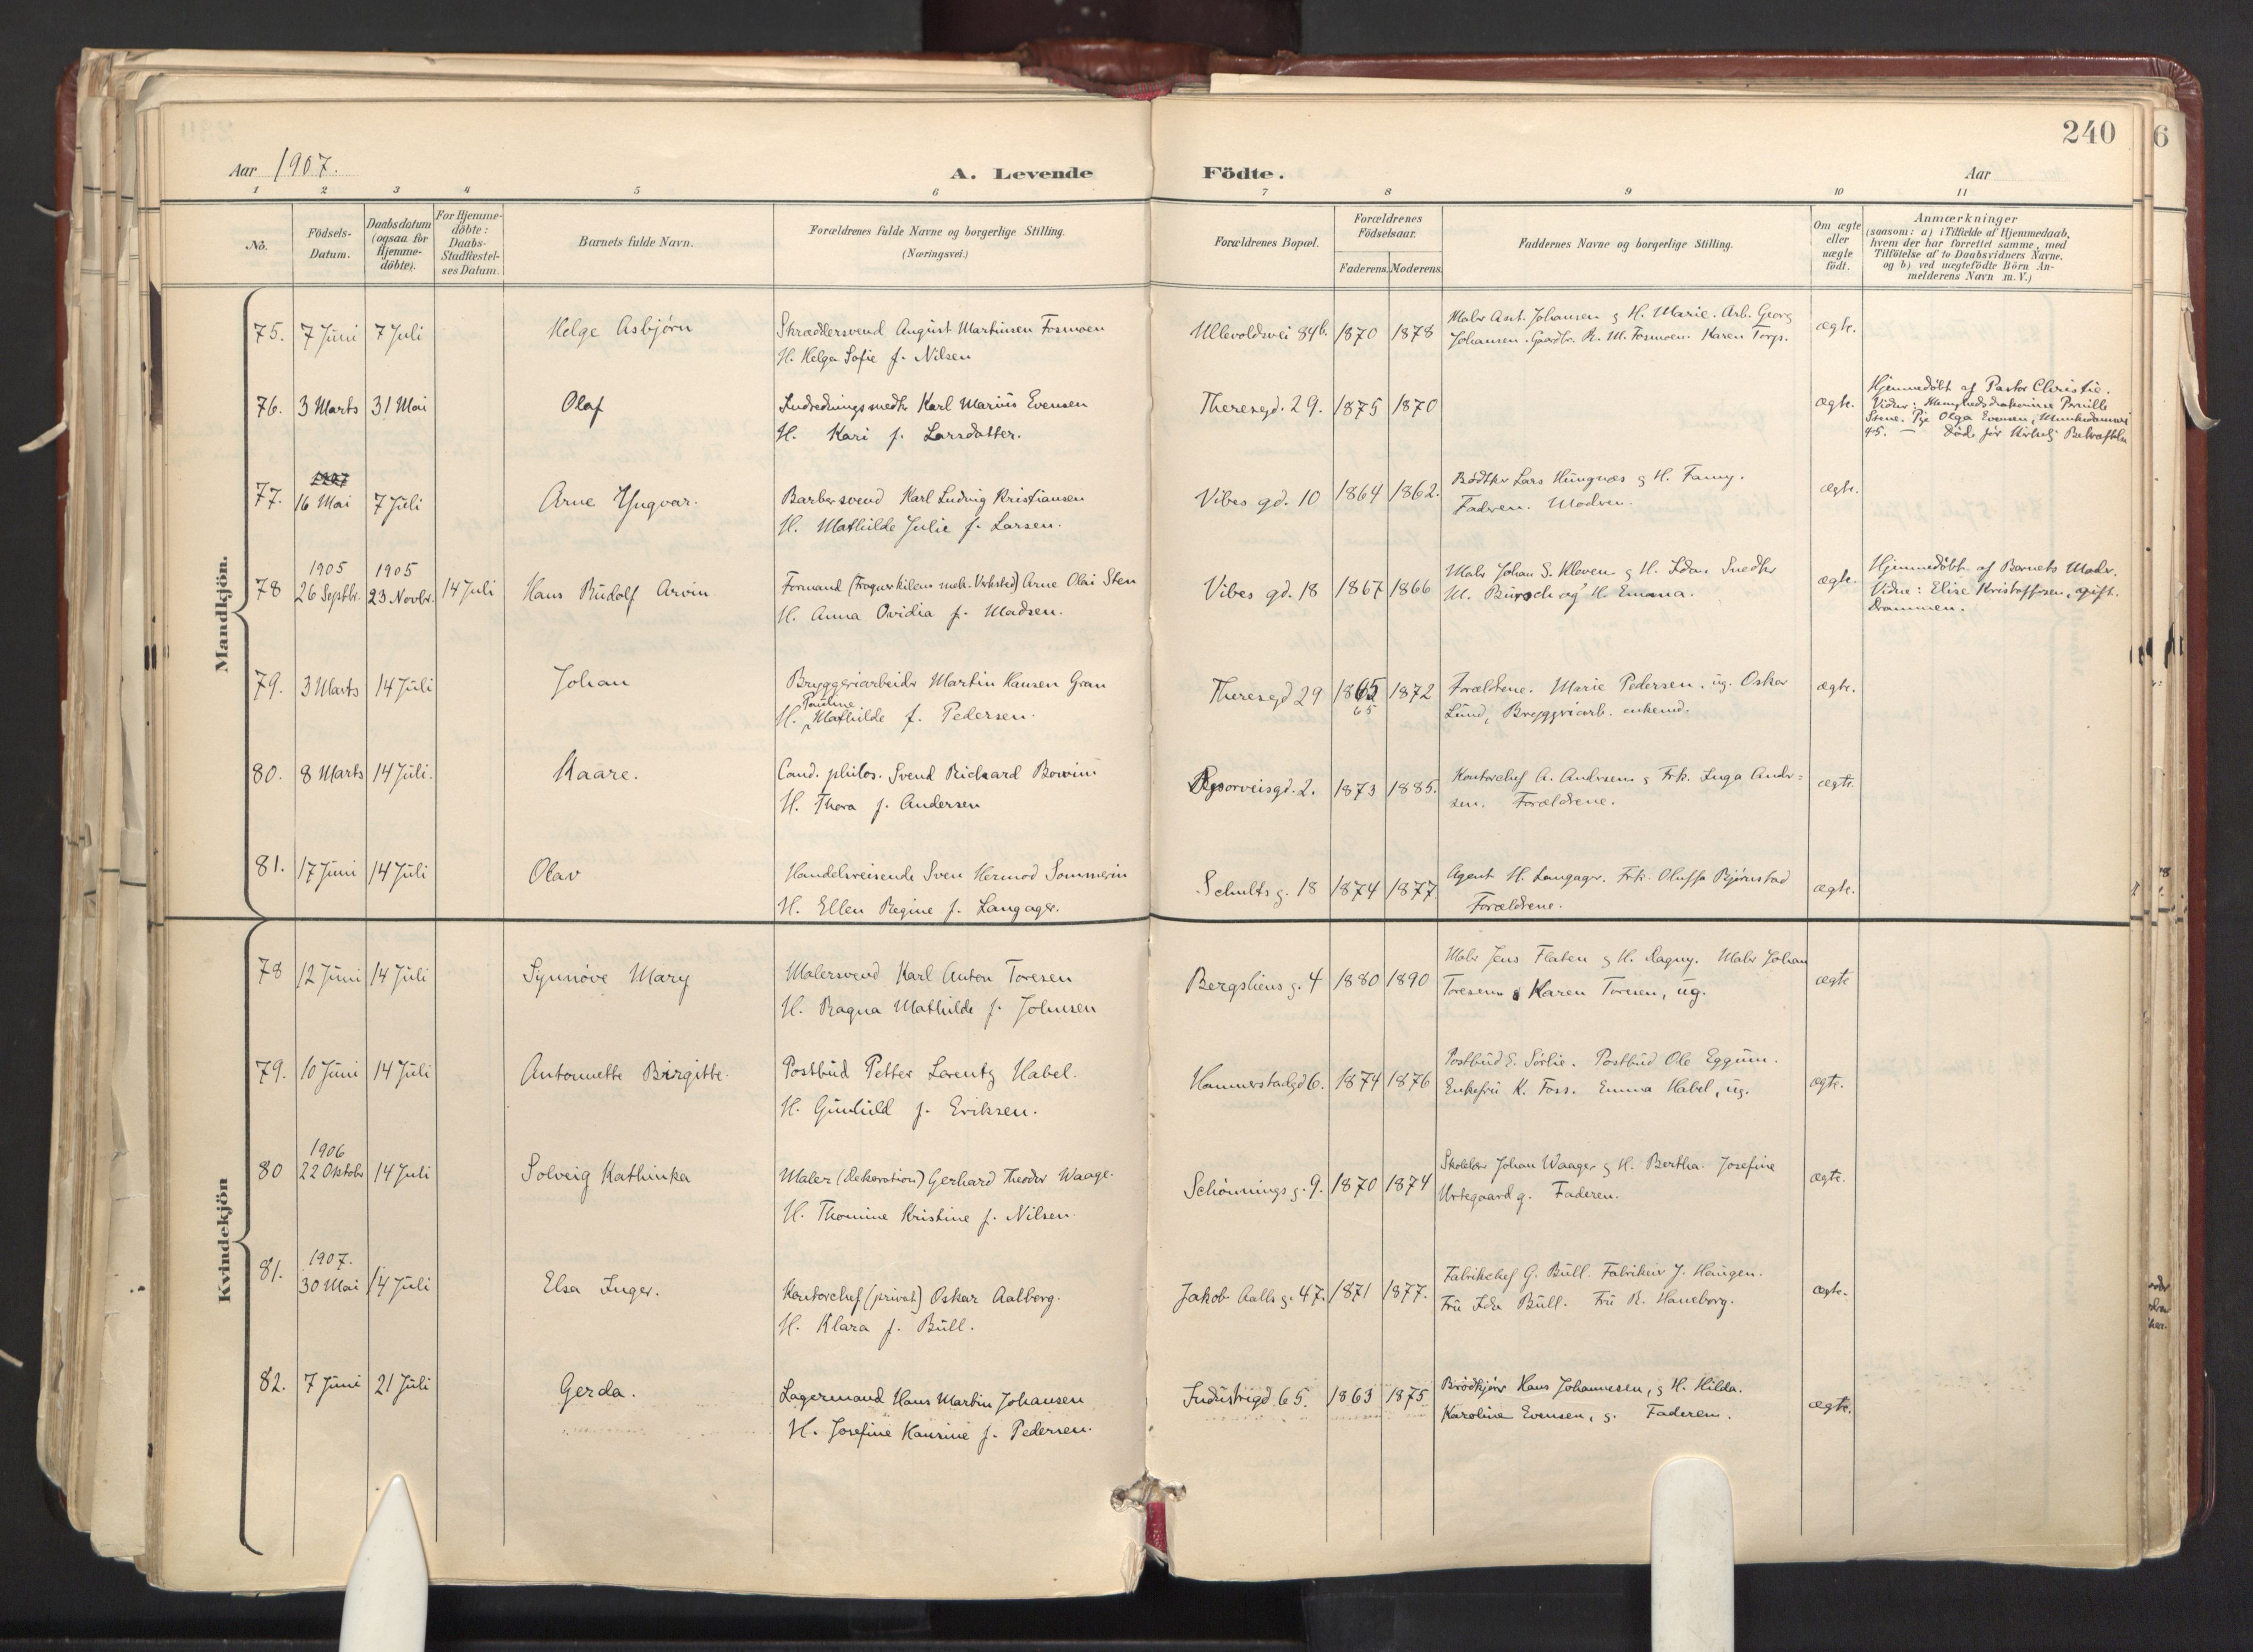 240
6
Aar 1907.
A. Levende
Födte.
Aar
1 2 3 4 5 6 7 8 9 10 11
No.
Födsels-
Datum.
Daabsdatum
(ogsaa for
Hjemme-
döbte).
For Hjemme-
döbte:
Daabs-
Stadfæstel-
ses Datum.
Barnets fulde Navn.
Forældrenes fulde Navne og borgerlige Stilling.
(Næringsvei.)
Forældrenes Bopæl.
Forældrenes
Födselsaar.
Faderens. Moderens.
Faddernes Navne og borgerlige Stilling.
Om ægte
eller
uægte
födt.
Anmærkninger
(saasom: a) i Tilfælde af Hjemmedaab,
hvem der har forrettet samme, med
Tilföielse af to Daabsvidners Navne,
og b) ved uægtefödte Börn An-
melderens Navn m. V.)
Mandkjön.
75. 7 Juni 7 Juli Helge Asbjørn
Skræddersvend August Martinsen Fosmoen
H. Helga Sofie f. Nilsen
Ullevoldsvei 84b. 1870 1878
Maler Ant. Johansen g H. Marie. Arb. Georg
Johansen. Gaardbr. R. M. Fosmoen. Karen Torgs.
ægte.
76. 3 Marts 31 Mai Olaf
Indredningssnedker Karl Marius Evensen
H. Kari f. Larsdatter.
Theresegd. 29. 1875 1870
ægte.
Hjemmedøbt af Pastor Christie.
Vidner: Menighedsdiakonisse Pernille
Stene. Pige Olga Evensen, Munkedamsvei
45. — Døde før Kirkelig Bekræftelse
77. 16 Mai 7 Juli Arne Yngvar.
Barbersvend Karl Ludvig Kristiansen
H. Mathilde Julie f. Larsen.
Vibes gd. 10 1864 1862.
Bødtker Lars Hungnæs g H. Fanny.
Faderen. Moderen.
ægte.
78 1905 26 Septbr. 1905 23 Novbr. 14 Juli Hans Rudolf Arvin
Formand (Frognerkilens mek. Verksted) Arne Olai Sten
H. Anna Ovidia f. Madsen.
Vibes gd. 18 1867 1866
Maler Johan S. Kloven g H. Ida. Snedker
M. Bursch og H. Emma.
ægte.
Hjemmedøbt af Barnets Moder.
Vidne: Elise Kristoffersen, gift.
Drammen.
79. 3 Marts 14 Juli Johan
Bryggeriarbeider Martin Hansen Gran
Pauline
H. Mathilde f. Pedersen.
Theresegd 29 1865 1872
65
Forældrene. Marie Pedersen, ug. Oskar
Lund, Bryggeriarb. enkemd.
ægte.
80. 8 Marts 14 Juli. Kaare.
Cand. philos. Svend Richard Bowim
H. Thora f. Andersen
1873 1885.
Kontorchef A. Andersen g Frk. Inga Ander-
sen. Forældrene.
ægte.
81. 17 Juni 14 Juli Olav
Handelsreisende Sven Hermod Sommerin
H. Ellen Regine f. Langager.
Schultsg. 18 1874 1877
Agent H. Langager. Frk. Oluffa Bjørnstad
Forældrene.
ægte.
Kvindekjön
78 12 Juni 14 Juli Synnöve Mary
Malersvend Karl Anton Toresen
H. Ragna Mathilde f. Johnsen
Bergsliens g. 4 1880 1890
Maler Jens Flaten g H. Dagny. Maler Johan
Toresen g Karen Toresen, ug.
ægte
79. 10 Juni 14 Juli Antonette Birgitte.
Postbud Petter Lorentz Habel.
H. Gunhild f. Eriksen.
Hammerstadgd 6. 1874 1876
Postbud E. Sørlie. Postbud Ole Eggum.
Enkefru K. Foss. Emma Habel, ug.
ægte.
80 1906 22 Oktobr 14 Juli Solveig Kathinka
Maler (dekoration) Gerhard Theodor Waage.
H. Thomine Kristine f. Nilsen.
Schönnings g. 9. 1870 1874
Johan Waager g H. Bertha. Josefine
Urtegaard g. Faderen.
ægte.
81. 1907. 30 Mai 14 Juli Elsa Inger.
Kontorchef (privat) Oskar Aalberg.
H. Klara f. Bull.
Jakob Aalls g. 47. 1871 1877.
Fabrikchef G. Bull. Fabrikeier J. Haugen.
Fru Ida Bull. Fru R. Haneborg.
ægte.
82. 7 Juni 21 Juli Gerda.
Lagermand Hans Martin Johansen
H. Josefine Haurine f. Pedersen.
Industrigd. 65. 1863 1875
Brødkjører Hans Johannesen, g H. Hilda.
Karoline Evensen, g. Faderen.
ægte.